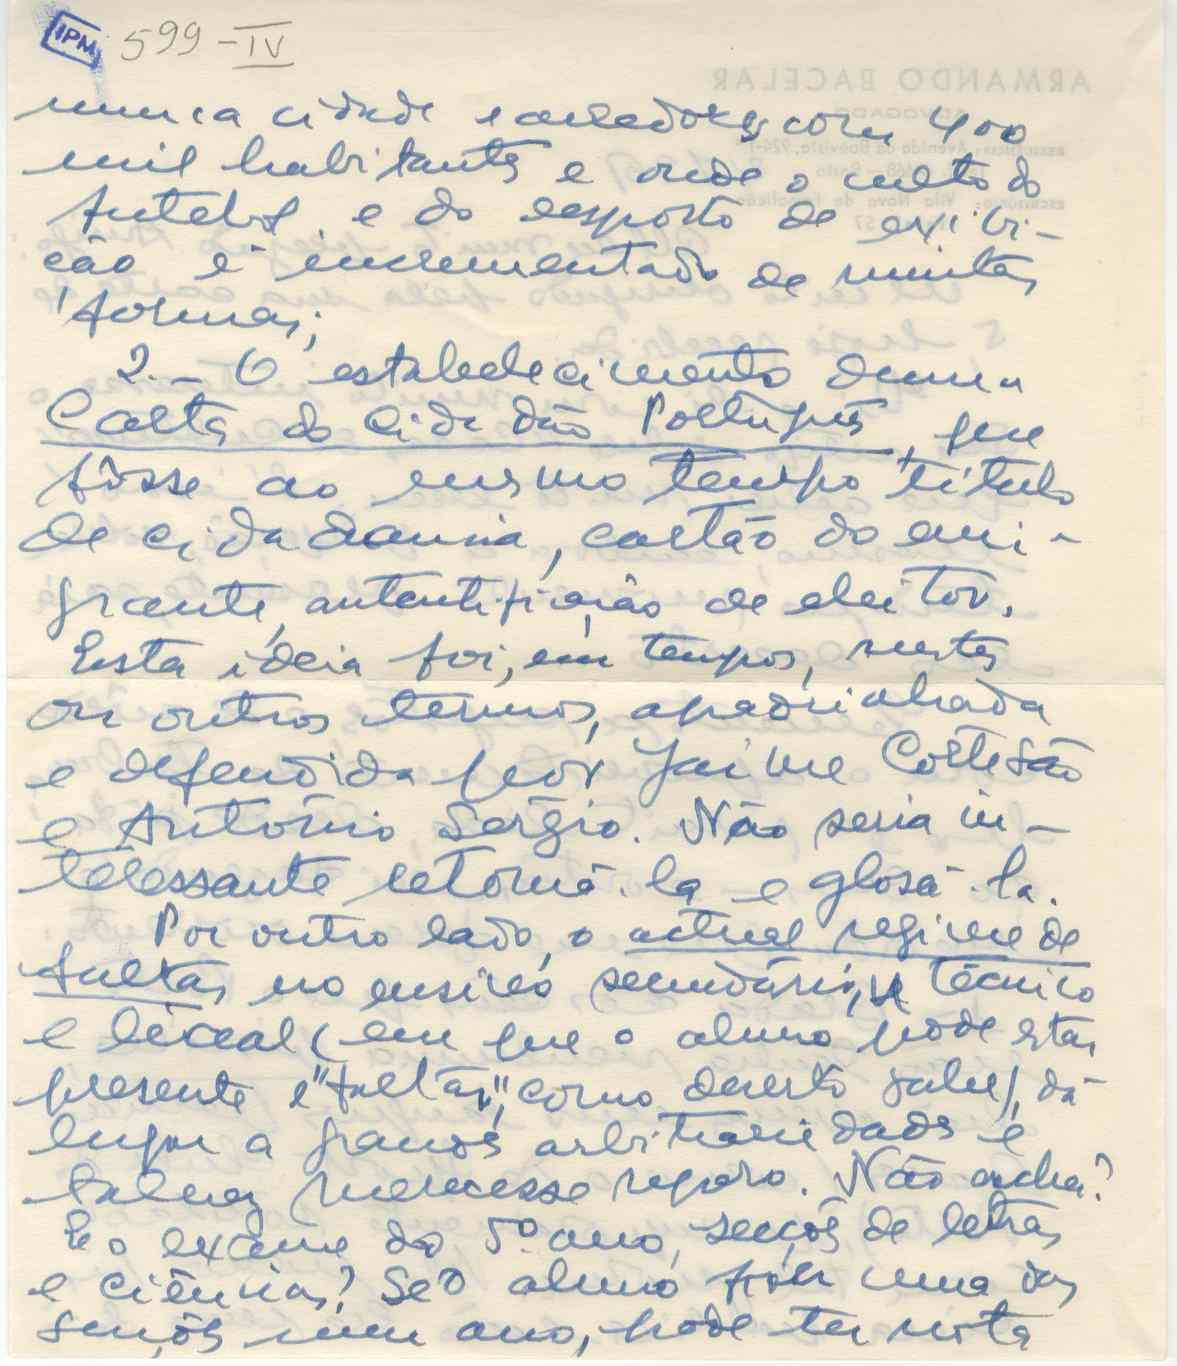 IPM 599-IV
numa cidade e arredores com 400
mil habitantes e onde o culto do
futebol e do desporto de exibi-
ção é incrementado de muitas
formas;
2.- O estabelecimento duma
Carta do Cidadão Português, que
fôsse ao mesmo tempo título
de cidadania, cartão do emi-
grante, autentificação de eleitor.
Esta ideia foi, em tempos, nestes
ou outros termos, apadrinhada
e defendida por Jaime Cortesão
e António Sérgio. Não seria in-
teressante retomá-la e glosá-la.
Por outro lado, o actual regime de
faltas no ensino secundário, técnico
e liceal (em que o aluno pode estar
presente e "faltar", como decerto sabe), dá
lugar a grandes arbitrariedades e
talvez merecesse reparo. Não acha?
E o exame do 5º ano, secções de letras
e ciências? Se o aluno fizer uma das
secções num ano, pode ter nota
ARMANDO BACELAR
ADVOGADO